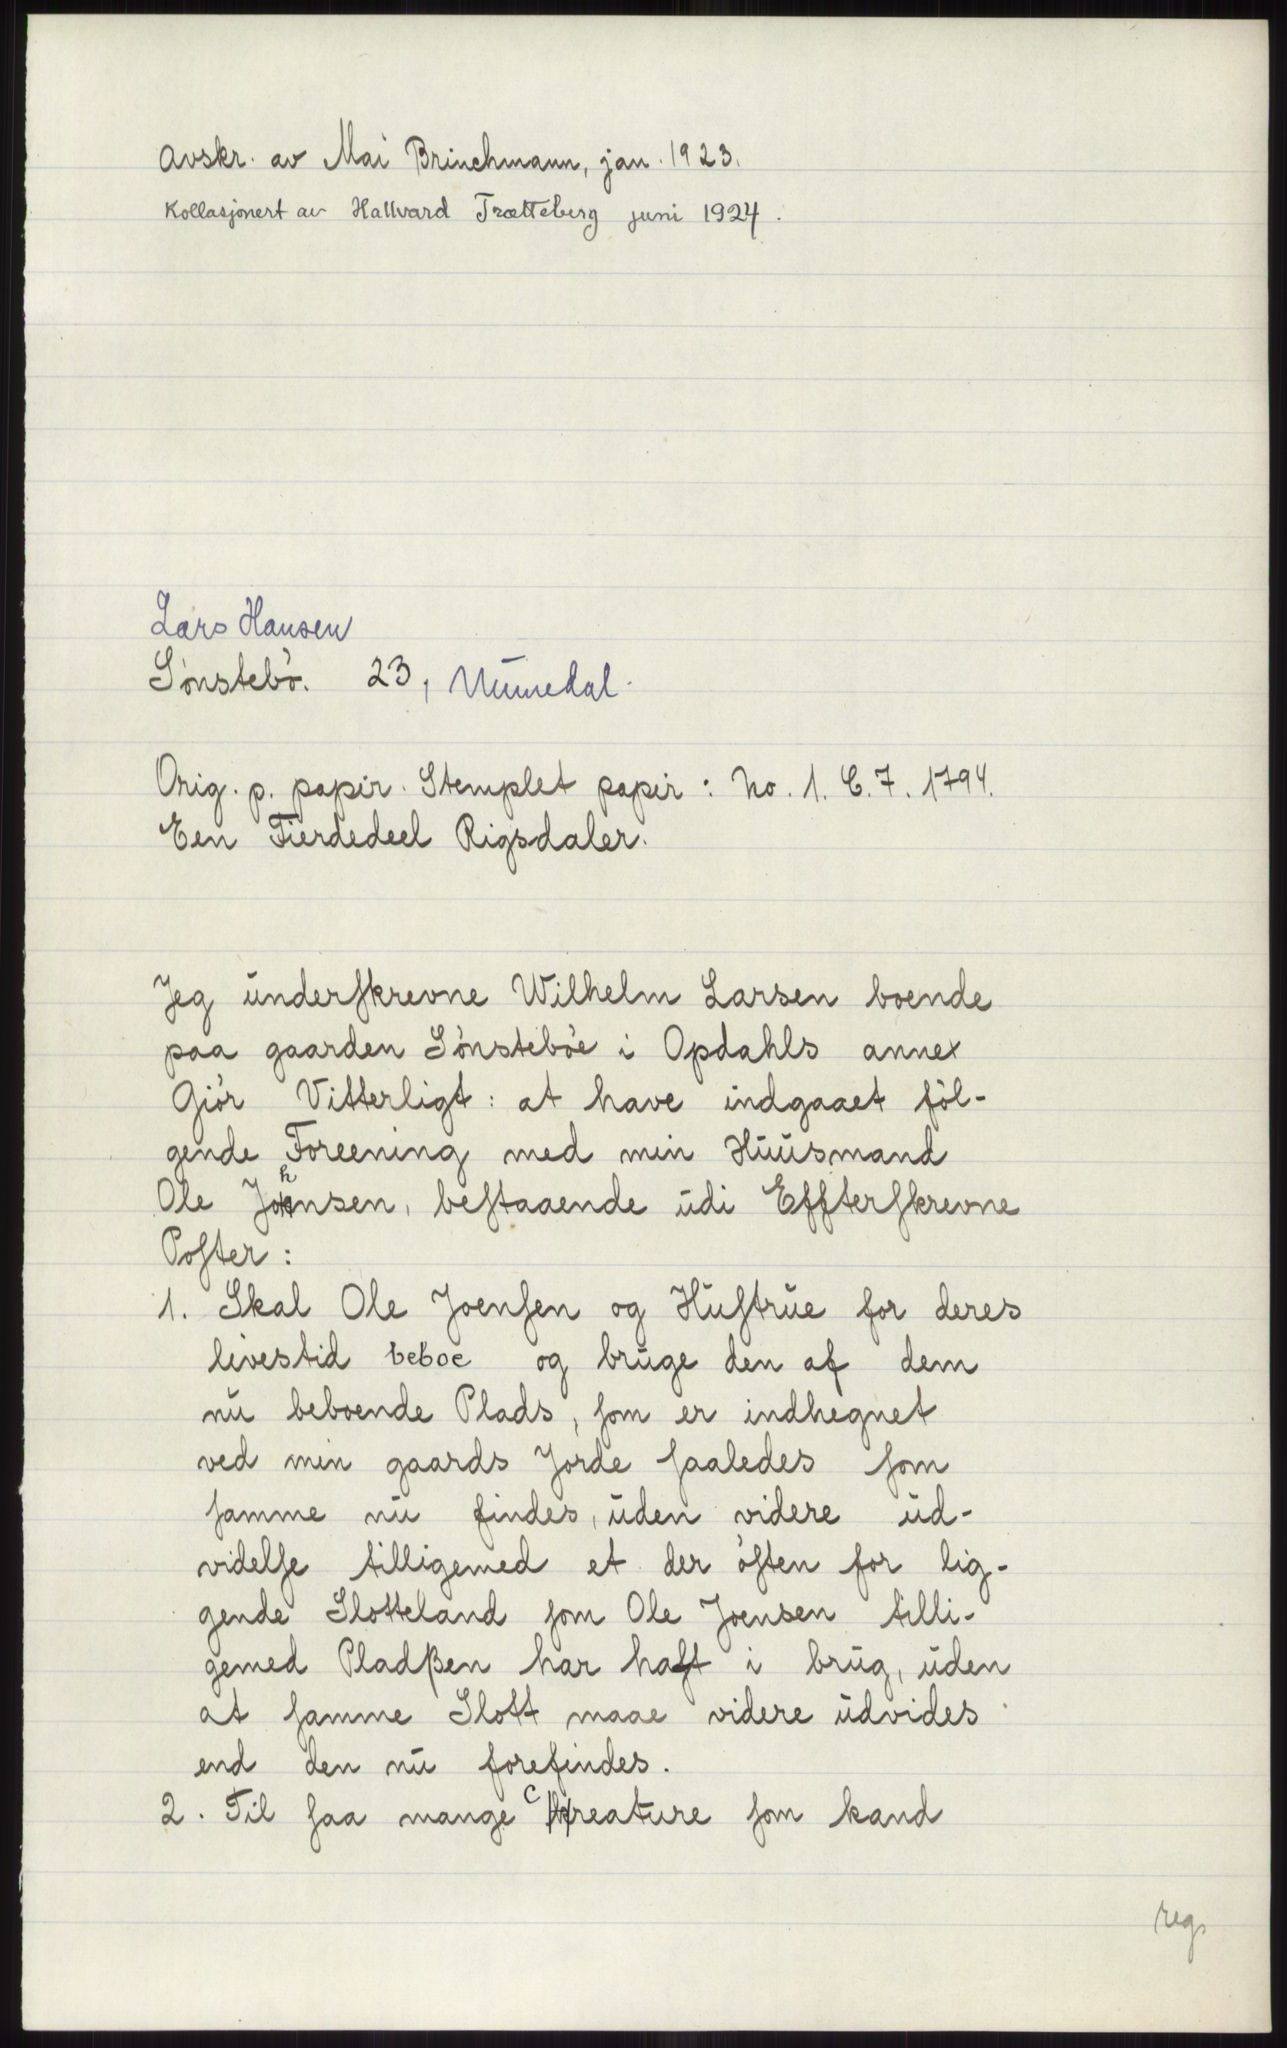 Avskr. av Mai Brinchmann, jan. 1923.
Kollasjonert av Hallvard Trætteberg juni 1924.
Lars Hansen
Sönstebö. 23, Numedal.
Orig. p. papir. Stemplet papir: No. 1. C. 7. 1794.
Een Fierdedeel Rigsdaler.
Jeg ūnderſkrevne Wilhelm Larsen boende
paa gaarden Sönsteböe i Opdahls annex
Giör Vitterligt: at have indgaaet föl-
gende Foreening med min Hūūsmand
Ole Johnsen, beſtaaende ūdi Effterſkrevne
Poſter:
1. Skal Ole Joenſen og Hūſtrūe for deres
livestid beboe og brūge den af dem
nū beboende Plads, ſom er indhegnet
ved min gaards Jorde ſaaledes ſom
ſamme nū findes, ūden videre ūd-
videlſe tilligemed et der öſten for lig-
gende Slotteland ſom Ole Joensen tilli-
gemed Pladßen har haft i brūg, ūden
at ſamme Slott maae videre ūdvides
end den nū forefindes.
2. Til ſaa mange Creature ſom kand
reg.